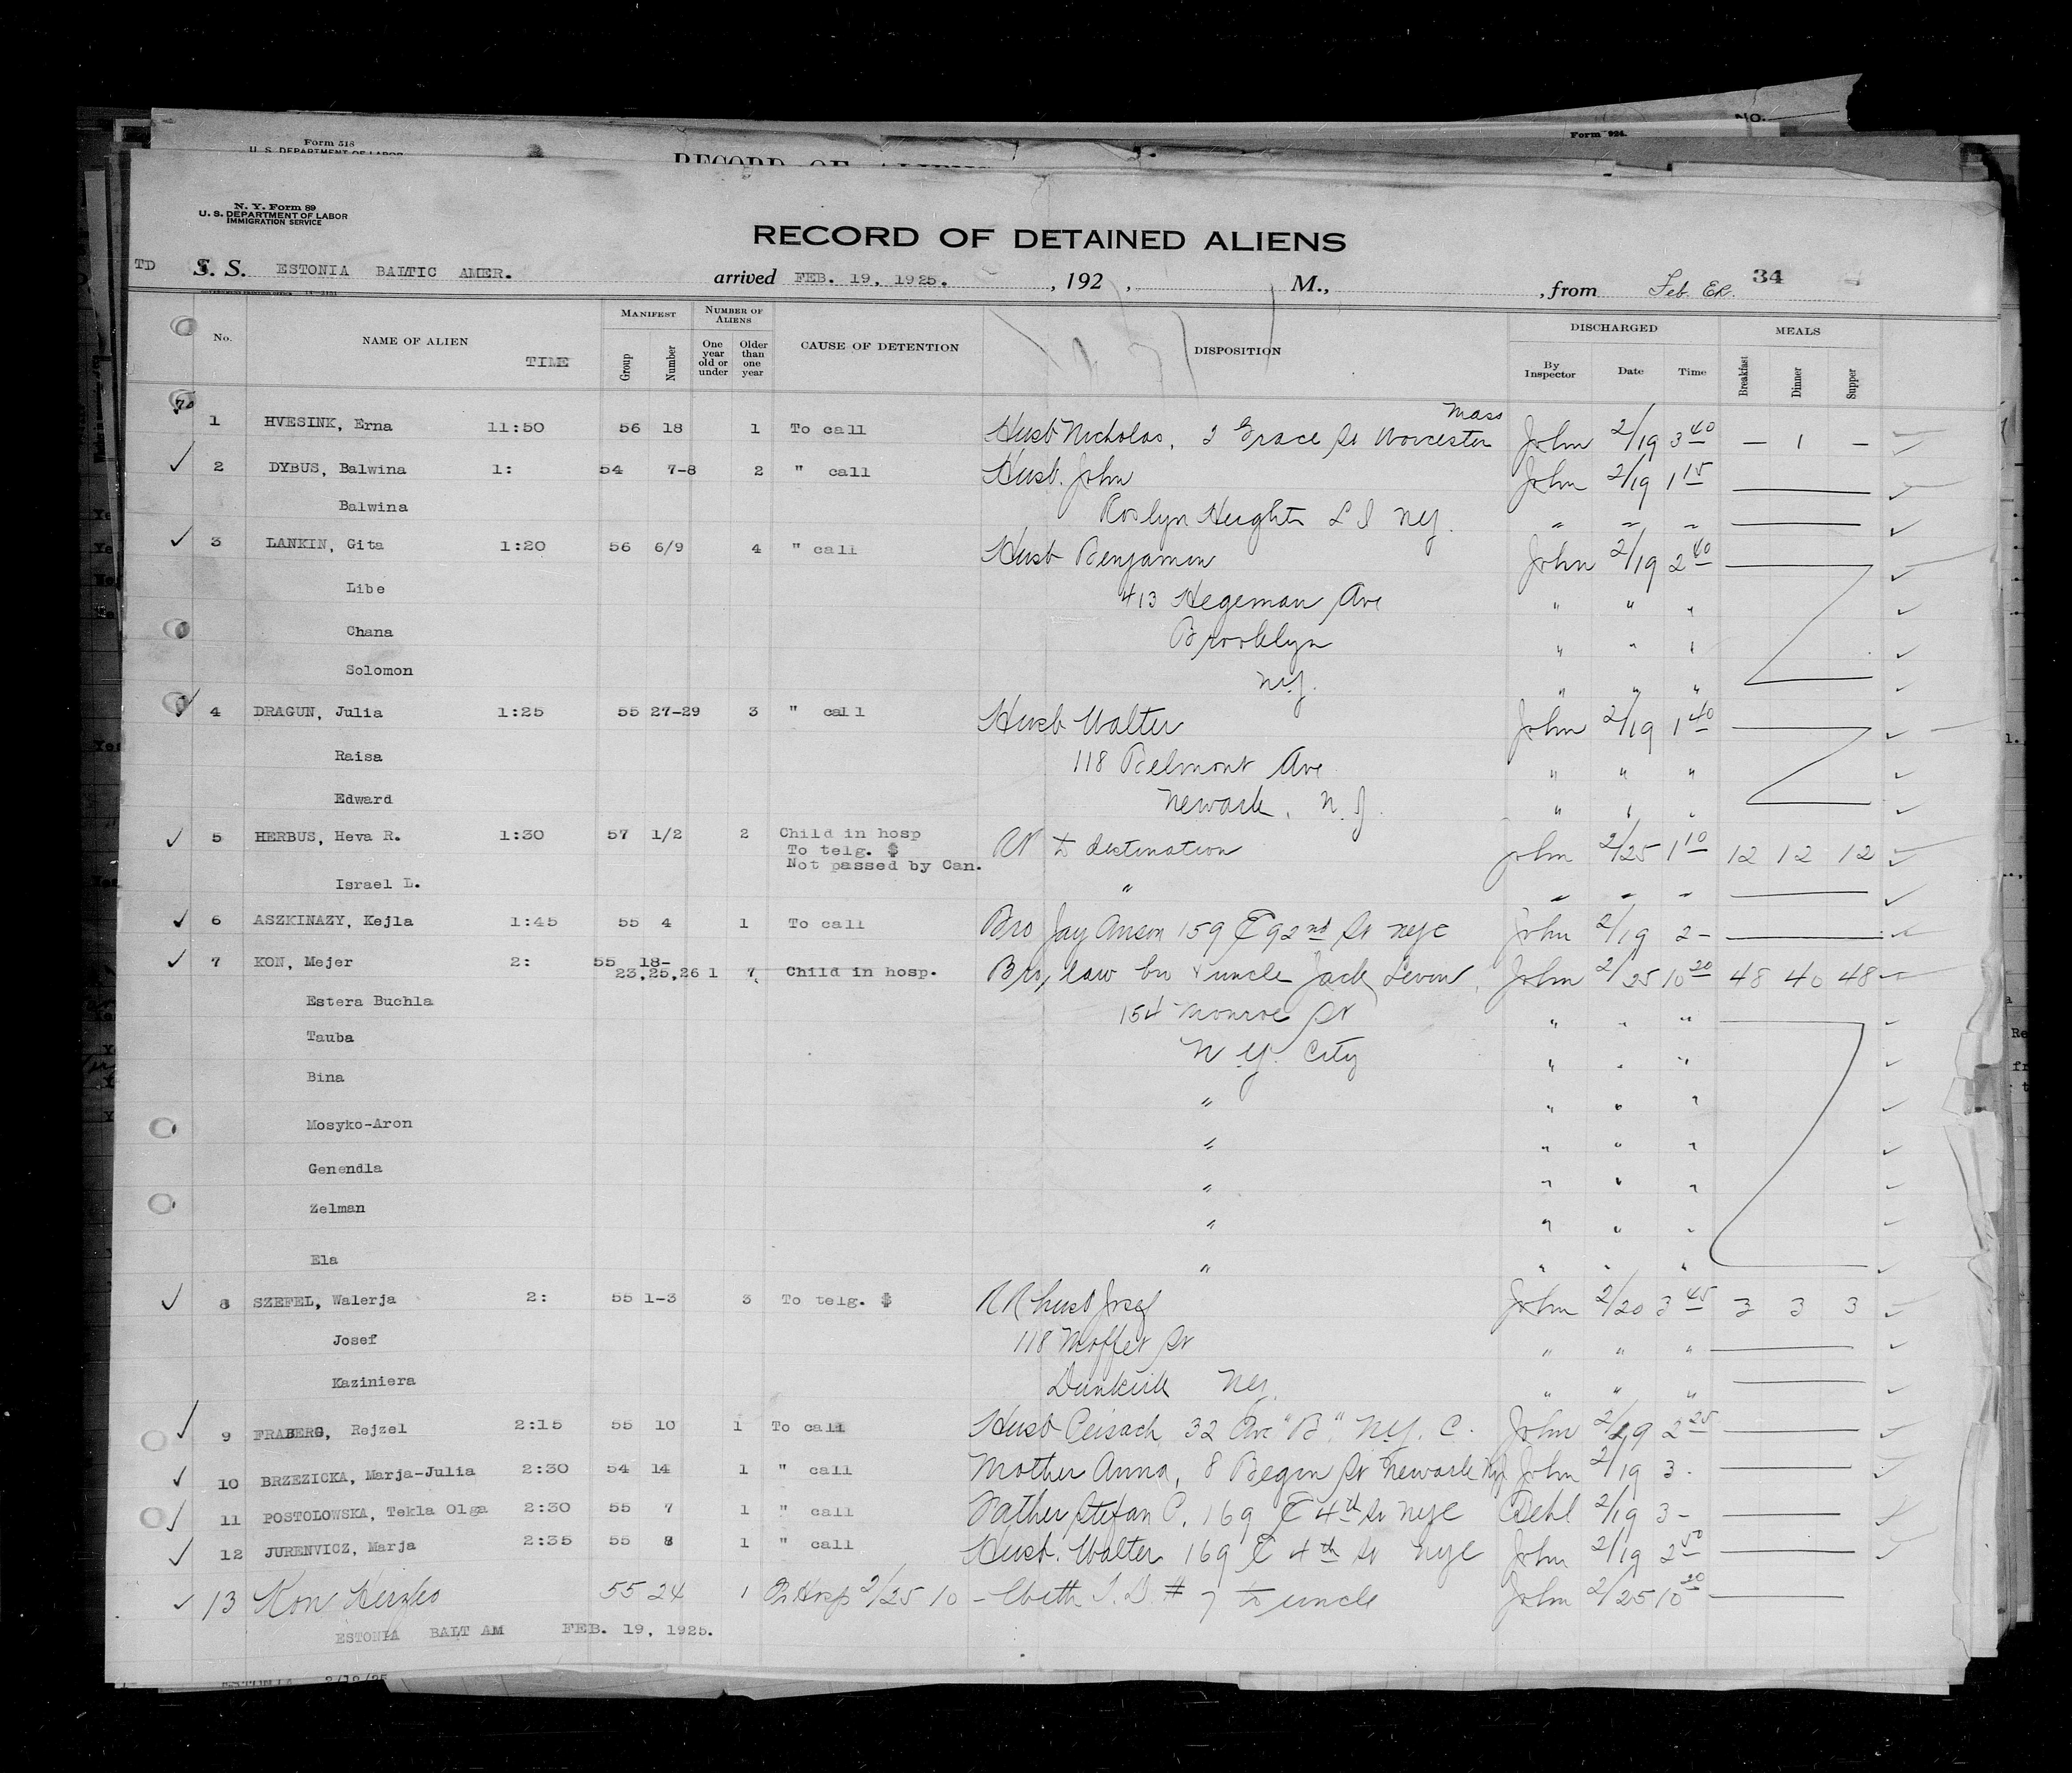 No.
Form 924.
Form 518
U. S. DEPARTMENT OF LABOR
RECORD OF ALIENS
N. Y. Form 89
U. S. DEPARTMENT OF LABOR
IMMIGRATION SERVICE
RECORD OF DETAINED ALIENS
TD S. S. ESTONIA BALTIC AMER. arrived FEB. 19, 1925. , 192 , M., , from 34
No. NAME OF ALIEN TIME MANIFEST Group Number NUMBER OF ALIENS One year old or under Older than one year CAUSE OF DETENTION DISPOSITION DISCHARGED By Inspector Date Time MEALS Breakfast Dinner Supper
1 HVESINK, Erna 11:50 56 18 1 To call Husb Nicholas, 2 Grace St Worcester Mass John 2/19 3 40 — 1 —
2 DYBUS, Balwina 1: 54 7-8 2 " call Husb. John John 2/19 1 15
Balwina Roslyn Heights L I NY. " " "
3 LANKIN, Gita 1:20 56 6/9 4 " call Husb Benjamin John 2/19 2 40
Libe 413 Hegeman Ave " " "
Chana Brooklyn " " "
Solomon NY. " " "
4 DRAGUN, Julia 1:25 55 27-29 3 " call Husb Walter John 2/19 1 40
Raisa 118 Belmont Ave " " "
Edward Newark, N.J. " " "
5 HERBUS, Heva R. 1:30 57 1/2 2 Child in hosp To telg. $ Not passed by Can. RR to destination John 2/25 1 10 12 12 12
Israel L. " " " "
6 ASZKINAZY, Kejla 1:45 55 4 1 To call Bro Jay Anson 159 E 92nd St NYC John 2/19 2 -
7 KON, Mejer 2: 55 18-23,25,26 1 7 Child in hosp. Bro, law bro & uncle Jack Levin, John 2/25 10 20 48 40 48
Estera Buchla 154 Monroe St " " "
Tauba N.Y. City " " "
Bina " " " "
Mosyko-Aron " " " "
Genendla " " " "
Zelman " " " "
Ela " " " "
8 SZEFEL, Walerja 2: 55 1-3 3 To telg. $ RR husb Josef John 2/20 3 45 3 3 3
Josef 118 Moffet St " " "
Kaziniera Dunkirk NY. " " "
9 FRABERG, Rejzel 2:15 55 10 1 To call Husb Peisach 32 Ave "B" N.Y. C. John 2/19 2 25
10 BRZEZICKA, Marja-Julia 2:30 54 14 1 " call Mother Anna, 8 St Newark NJ John 2/19 3.
11 POSTOLOWSKA, Tekla Olga 2:30 55 7 1 " call Father Stefan P. 169 E 4th St NYC 2/19 3 -
12 JURENVICZ, Marja 2:35 55 8 1 " call Husb. Walter 169 E 4th St NYC John 2/19 2 50
13 Kon Herzko 55 24 1 Hosp 2/25 10 - # 7 to uncle John 2/25 10 20
ESTONIA BALT AM FEB. 19, 1925.